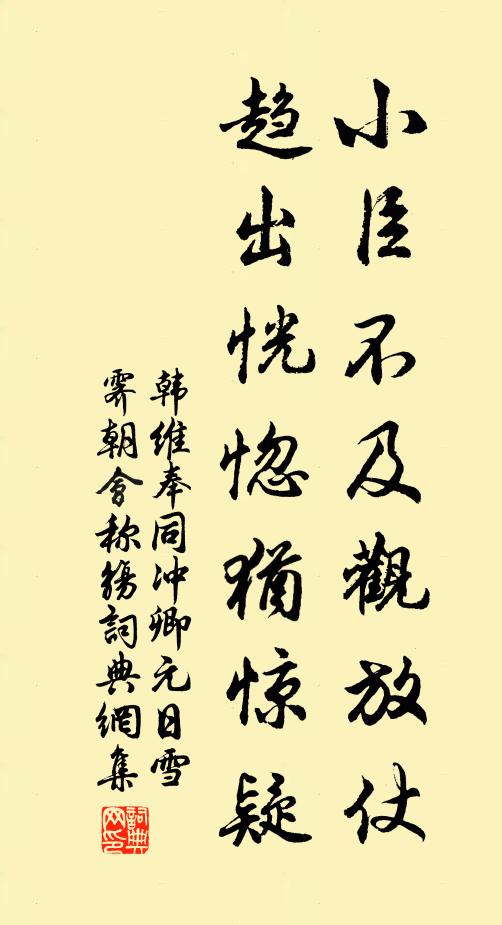 小臣不及觀放仗
趋出恍惚猶惊疑
韩维奉同冲卿元日雪
霁朝會称觞詞典網集
詞典網印